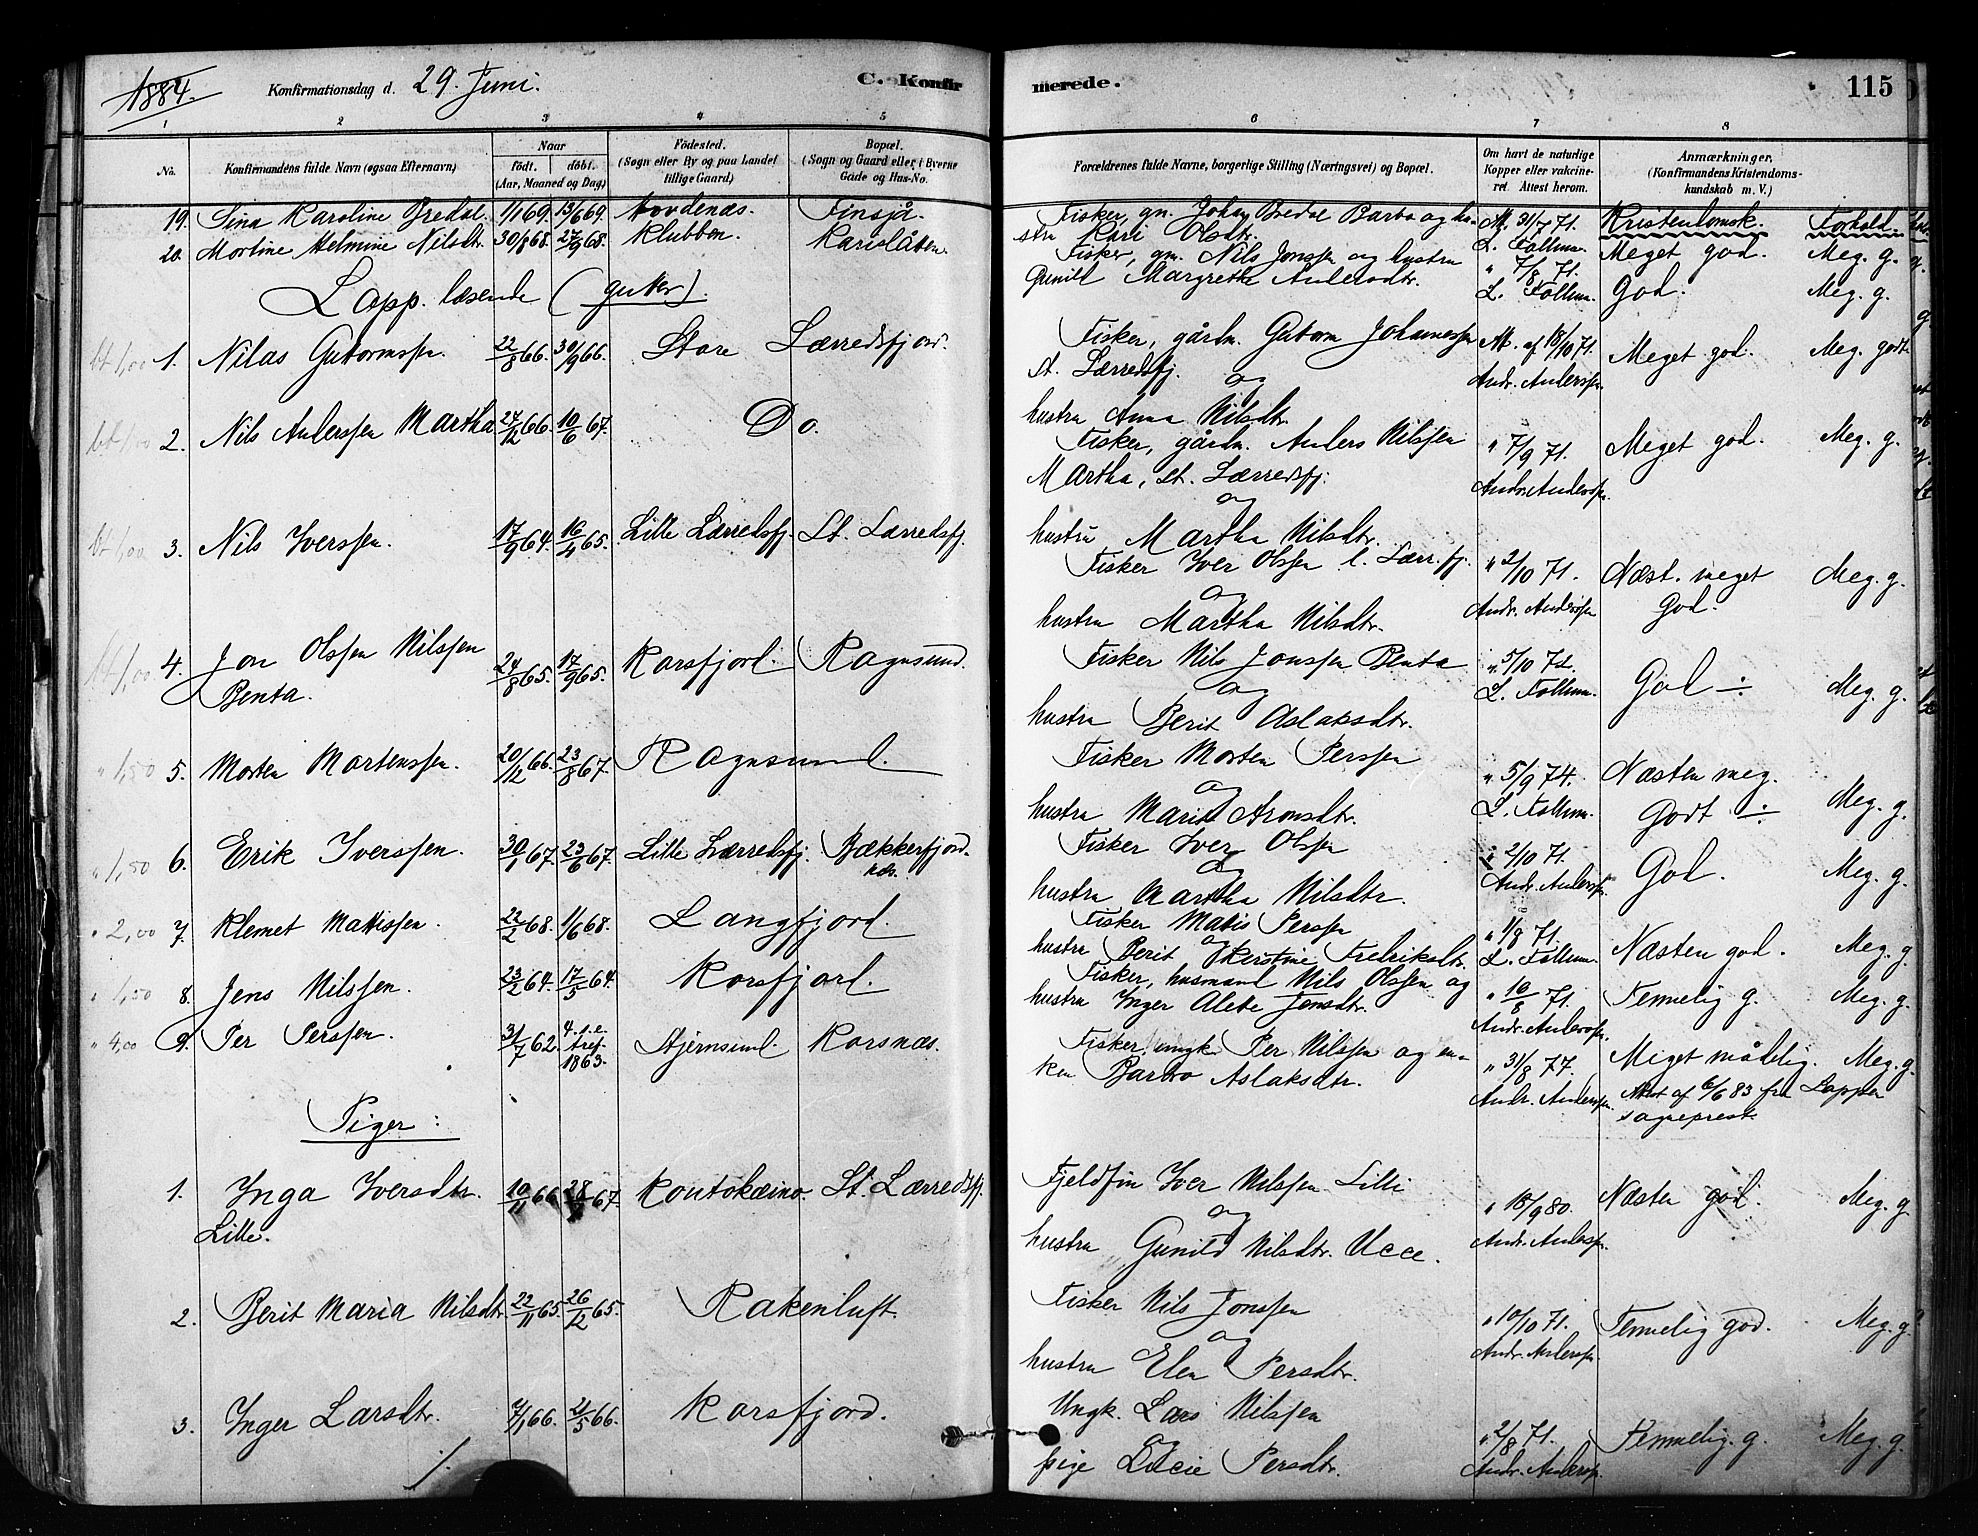 1884.
Konfirmationsdag d. 29. Juni.
C. Konfir
merede.
115
1 2 3 4 5 6 7 8
No.
Konfirmandens fulde Navn (ogsaa Efternavn)
Naar
født. døbt.
(Aar, Maaned og Dag)
Födested.
(Sogn eller By og paa Landet
tillige Gaard)
Bopæl.
(Sogn og Gaard eller i Byerne
Gade og Hus-No.
Forældrenes fulde Navne, borgerlige Stilling (Næringsvei) og Bopæl.
Om havt de naturlige
Kopper eller vakcine-
ret. Attest herom.
Anmærkninger.
(Konfirmandens Kristendoms-
kundskab m. V.)
Kristendomsk. Forhold.
19. Sina Karoline Bredal. 1/1 69. 13/6 69.
Fisker, gm. Johan Bredal Barbo og hu-
stru Kari Olsdtr.
M. 31/7 71.
L. Follum.
Meget god. Meg. g.
20. Mortine Helmine Nilsdtr. 30/8 68. 27/9 68. Klubben. Karislåten.
Fisker, gm. Nils Jonssen og hustru
Gunild Margrethe Andersdtr.
" 7/8 71.
L. Follum.
God. Meg. g.
Lapp. læsende (gutter).
bt 1,00 1. Nilas Gutormssen. 22/8 66. 30/9 66. Store Lærredsfjord.
Fisker, gårdm. Guttorm Johannessen
St. Lærredsfj.
og
hustru Anna Nilsdtr.
Att. af 18/10 71.
Andr. Anderssen.
Meget god. Meg. godt
bt 1,00 2. Nils Anderssen Martha 24/12 66. 10/6 67. Do.
Fisker, gårdm. Anders Nilssen
Martha, St. Lærredsfj.
og
hustru Martha Nilsdtr.
" 7/9 71.
Andr. Anderssen.
Meget god. Meg. g.
bt 1,00 3. Nils Iverssen. 17/9 64. 16/4 65. Lille Lærredsfj. St. Lærredsfj.
Fisker Iver Olssen l. Lærr.fj.
og
hustru Martha Nilsdtr.
" 2/10 71.
Andr. Anderssen
Næst. meget
god.
Meg. g.
bt 1,00 4. Jon Olssen Nilssen
Benta.
24/8 65. 17/9 65. Korsfjord. Rognsund.
Fisker Nils Jonssen Benta
og
hustru Berit Aslaksdtr.
L. Follum.
God ÷ Meg. g.
" 1,50 5. Morten Mortenssen. 20/12 66. 23/8 67. Rognsund.
Fisker Morten Perssen
og
hustru Marit Aronsdtr.
" 5/9 74.
L. Follum.
Næsten meg.
Godt ÷
Meg. g.
" 1,50 6. Erik Iverssen. 30/1 67. 23/6 67. Lille Lærredsfj. Bækkerfjord.
næs.
Fisker Iver Olssen
og
hustru Martha Nilsdtr.
" 2/10 71.
Andr. Anderssen.
God. Meg. g.
" 2,00 7. Klemet Mattissen. 22/2 68. 1/6 68. Langfjord.
Fisker Matis Perssen
og
hustru Berit Kerstine Fredriksdtr.
" 1/8 71.
L. Follum.
Næsten god. Meg. g.
" 1,50 8. Jens Nilssen. 23/2 64. 17/5 64. Korsfjord.
Fisker, husmand Nils Olssen og
hustru Inger Alete Jensdtr.
" 10/8 71.
Andr. Anderssen.
Temmelig g. Meg. g.
" 4,00 9. Per Perssen. 31/7 62. 4. s. e.
tref.
1863.
Stjernsund. Korsnæs.
Fisker, ungk. Per Nilssen og en-
ken Barbro Aslaksdtr.
" 31/8 77.
Andr. Anderssen.
Meget mådelig. Meg. g.
Attest af 6/6 83 fra Loppen
sogneprest.
Piger:
1. Inga Iversdtr.
Lille.
10/11 66. Kautokæino. St. Lærredsfj.
Fjeldfin Iver Nilssen Lille
og
hustru Gunild Nilsdtr. Ucce.
" 18/9 80.
Andr. Anderssen.
Næsten god. Meg. g.
2. Berit Maria Nilsdtr. 22/11 65. 26/12 65. Rakenluft.
Fisker Nils Jonssen
og
hustru Elen Persdtr.
" 10/10 71.
Andr. Anderssen.
Temmelig god. Meg. g.
3. Inger Larsdtr. 7/1 66. 21/5 66. Korsfjord.
Ungk. Lars Nilssen
og
pige Lucie Persdtr.
" 2/8 71.
Andr. Anderssen.
Temmelig. g. Meg. g.
./.